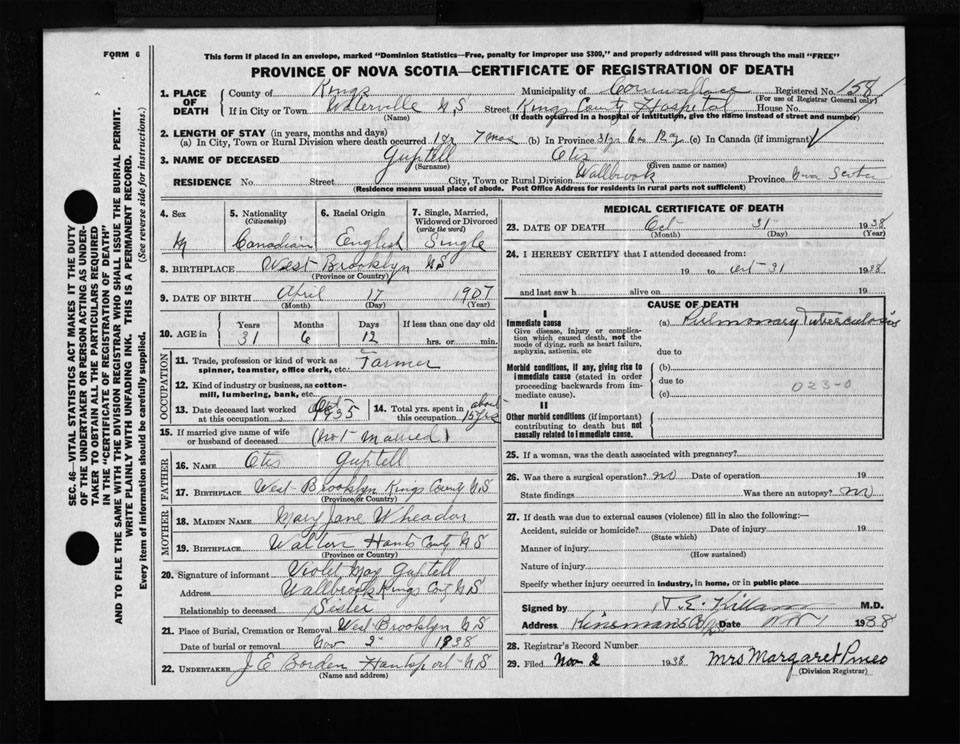 FORM 6
This form if placed in an envelope, marked "Dominion Statistics—Free, penalty for improper use $300," and properly addressed will pass through the mail "FREE"
PROVINCE OF NOVA SCOTIA—CERTIFICATE OF REGISTRATION OF DEATH
1. PLACE OF DEATH County of Kings Municipality of Cornwallis Registered No. 158
(For use of Registrar General only)
If in City or Town Waterville N S Street Kings County Hospital House No.
(Name) (If death occurred in a hospital or institution, give the name instead of street and number)
2. LENGTH OF STAY (in years, months and days)
(a) In City, Town or Rural Division where death occurred 1 yr 7 mos (b) In Province 31 yr 6 m (c) In Canada (if immigrant)
3. NAME OF DECEASED Guptell Otis
(Surname) (Given name or names)
RESIDENCE No. Street City, Town or Rural Division Wallbrook Province Nova Scotia
(Residence means usual place of abode. Post Office Address for residents in rural parts not sufficient)
4. Sex M
5. Nationality (Citizenship) Canadian
6. Racial Origin English
7. Single, Married, Widowed or Divorced (write the word) Single
8. BIRTHPLACE West Brooklyn N S
(Province or Country)
9. DATE OF BIRTH April 17 1907
(Month) (Day) (Year)
10. AGE in Years 31 Months 6 Days 12 If less than one day hrs. or min.
OCCUPATION
11. Trade, profession or kind of work as spinner, teamster, office clerk, etc. Farmer
12. Kind of industry or business, as cotton-mill, lumbering, bank, etc.
13. Date deceased last worked at this occupation 1935
14. Total yrs. spent in this occupation about 15 yrs
15. If married give name of wife or husband of deceased (not married)
FATHER
16. NAME Otis Guptell
17. BIRTHPLACE West Brooklyn Kings County N S
(Province or Country)
MOTHER
18. MAIDEN NAME Mary Jane Wheadon
19. BIRTHPLACE Walton Hants County N S
(Province or Country)
20. Signature of informant Violet May Guptell
Address Wallbrook Kings Co N S
Relationship to deceased Sister
21. Place of Burial, Cremation or Removal West Brooklyn N S
Date of burial or removal Nov 2 1938
22. UNDERTAKER J E Borden Hantsport N S
(Name and address)
MEDICAL CERTIFICATE OF DEATH
23. DATE OF DEATH Oct 31 1938
(Month) (Day) (Year)
24. I HEREBY CERTIFY that I attended deceased from:
19 to Oct 31 1938
and last saw h alive on 19
CAUSE OF DEATH
I
Immediate cause (a) Pulmonary Tuberculosis
Give disease, injury or complication which caused death, not the mode of dying, such as heart failure, asphyxia, asthenia, etc
due to
Morbid conditions, if any, giving rise to immediate cause (stated in order proceeding backwards from immediate cause).
(b)
due to 023-0
(c)
II
Other morbid conditions (if important) contributing to death but not causally related to immediate cause.
25. If a woman, was the death associated with pregnancy?
26. Was there a surgical operation? no Date of operation 19
State findings Was there an autopsy? no
27. If death was due to external causes (violence) fill in also the following:—
Accident, suicide or homicide? Date of injury 19
(State which)
Manner of injury
(How sustained)
Nature of injury
Specify whether injury occurred in industry, in home, or in public place
Signed by M.D.
Address Date Nov 1 1938
28. Registrar's Record Number
29. Filed Nov 2 1938 Mrs Margaret Pineo
(Division Registrar)
SEC. 46—VITAL STATISTICS ACT MAKES IT THE DUTY
OF THE UNDERTAKER OR PERSON ACTING AS UNDER-
TAKER TO OBTAIN ALL THE PARTICULARS REQUIRED
IN THE "CERTIFICATE OF REGISTRATION OF DEATH"
AND TO FILE THE SAME WITH THE DIVISION REGISTRAR WHO SHALL ISSUE THE BURIAL PERMIT.
WRITE PLAINLY WITH UNFADING INK. THIS IS A PERMANENT RECORD.
Every item of information should be carefully supplied. (See reverse side for instructions.)